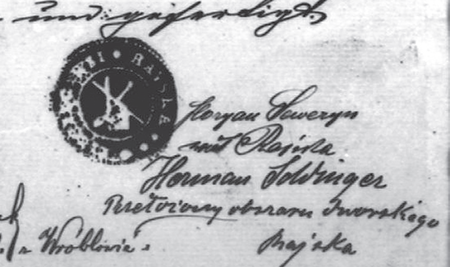 und gefertigt
RAJSKA
Floryan Seweryn
wójt Rajska
Herman Soldinger
Przełożony obszaru dworskiego
z Wróblowic
Rajska